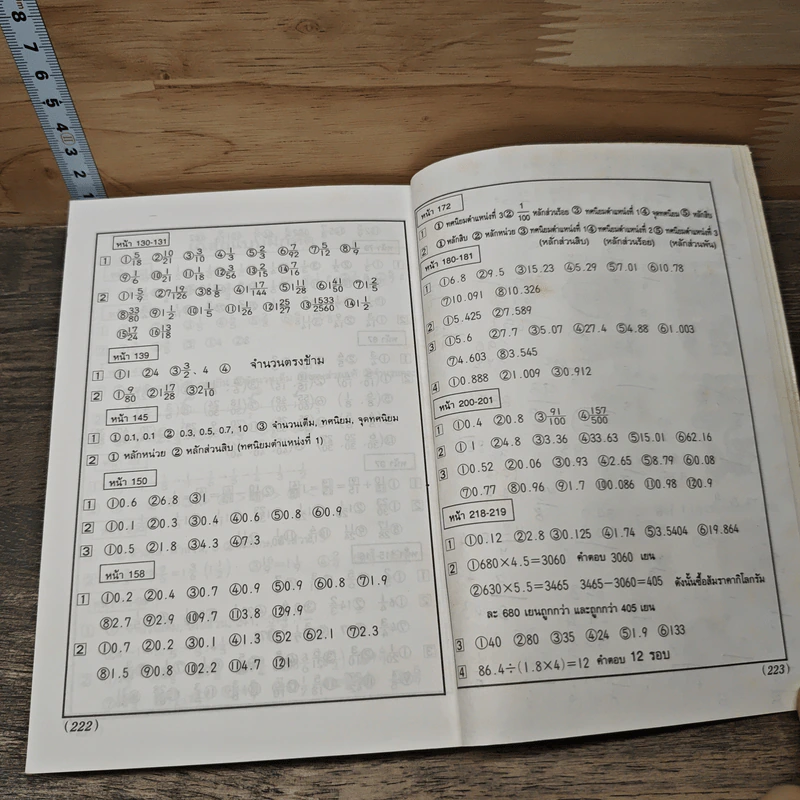 8 7 6 5 4 3 2 1
หน้า 130-131
1 ①5/18 ②10/21 ③3/10 ④1/3 ⑤2/3 ⑥7/92 ⑦5/12 ⑧1/9
⑨1/6 ⑩1/21 ⑪1/18 ⑫3/56 ⑬2/5 ⑭7/16
2 ①1 5/9 ②7 19/126 ③8 1/8 ④1 17/144 ⑤1 11/28 ⑥1 41/50 ⑦1 2/5
⑧33/80 ⑨1 1/2 ⑩1 1/5 ⑪1 1/26 ⑫1 25/27 ⑬1533/2560 ⑭1 1/2
⑮17/24 ⑯13/18
หน้า 139
1 ①1 ②4 ③3/2、4 ④ จำนวนตรงข้าม
2 ①9/80 ②1 17/28 ③2 1/10
หน้า 145
1 ① 0.1, 0.1 ② 0.3, 0.5, 0.7, 10 ③ จำนวนเต็ม, ทศนิยม, จุดทศนิยม
2 ① หลักหน่วย ② หลักส่วนสิบ (ทศนิยมตำแหน่งที่ 1)
หน้า 150
1 ①0.6 ②6.8 ③1
2 ①0.1 ②0.3 ③0.4 ④0.6 ⑤0.8 ⑥0.9
3 ①0.5 ②1.8 ③4.3 ④7.3
หน้า 158
1 ①0.2 ②0.4 ③0.7 ④0.9 ⑤0.9 ⑥0.8 ⑦1.9
⑧2.7 ⑨2.9 ⑩9.7 ⑪3.8 ⑫9.9
2 ①0.7 ②0.2 ③0.1 ④1.3 ⑤2 ⑥2.1 ⑦2.3
⑧1.5 ⑨0.8 ⑩2.2 ⑪4.7 ⑫1
(222)
หน้า 172
1 ① ทศนิยมตำแหน่งที่ 3 ② 1/100 หลักส่วนร้อย ③ ทศนิยมตำแหน่งที่ 1 ④ จุดทศนิยม ⑤ หลักสิบ
2 ① หลักสิบ ② หลักหน่วย ③ ทศนิยมตำแหน่งที่ 1 ④ ทศนิยมตำแหน่งที่ 2 ⑤ ทศนิยมตำแหน่งที่ 3
(หลักส่วนสิบ) (หลักส่วนร้อย) (หลักส่วนพัน)
หน้า 180-181
1 ①6.8 ②9.5 ③15.23 ④5.29 ⑤7.01 ⑥10.78
⑦10.091 ⑧10.326
2 ①5.425 ②7.589
3 ①5.6 ②7.7 ③5.07 ④27.4 ⑤4.88 ⑥1.003
⑦4.603 ⑧3.545
4 ①0.888 ②1.009 ③0.912
หน้า 200-201
1 ①0.4 ②0.8 ③91/100 ④157/500
2 ①1 ②4.8 ③3.36 ④33.63 ⑤15.01 ⑥62.16
3 ①0.52 ②0.06 ③0.93 ④2.65 ⑤8.79 ⑥0.08
⑦0.77 ⑧0.96 ⑨1.7 ⑩0.086 ⑪0.98 ⑫0.9
หน้า 218-219
1 ①0.12 ②2.8 ③0.125 ④1.74 ⑤3.5404 ⑥19.864
2 ①680×4.5=3060 คำตอบ 3060 เยน
②630×5.5=3465 3465-3060=405 ดังนั้นซื้อส้มราคากิโลกรัม
ละ 680 เยนถูกกว่า และถูกกว่า 405 เยน
3 ①40 ②80 ③35 ④24 ⑤1.9 ⑥133
4 86.4÷(1.8×4)=12 คำตอบ 12 รอบ
(223)